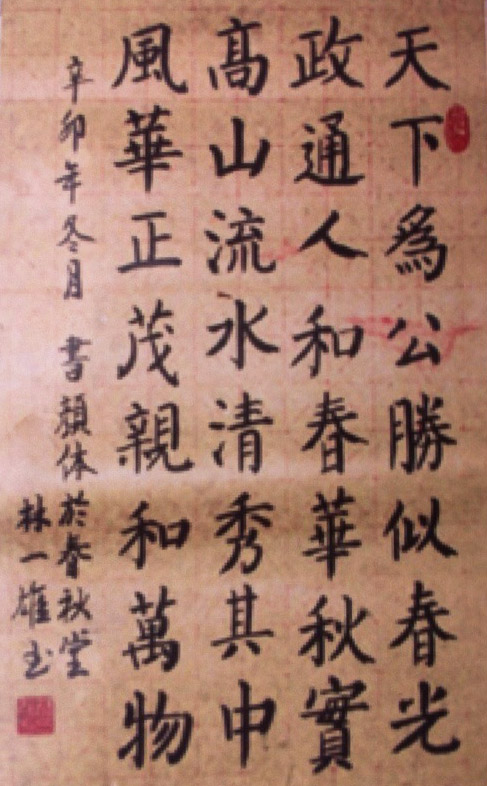 天下為公勝似春光
政通人和春華秋實
高山流水清秀其中
風華正茂親和萬物
辛卯年冬月 書顏体於春秋堂
林一雄玉